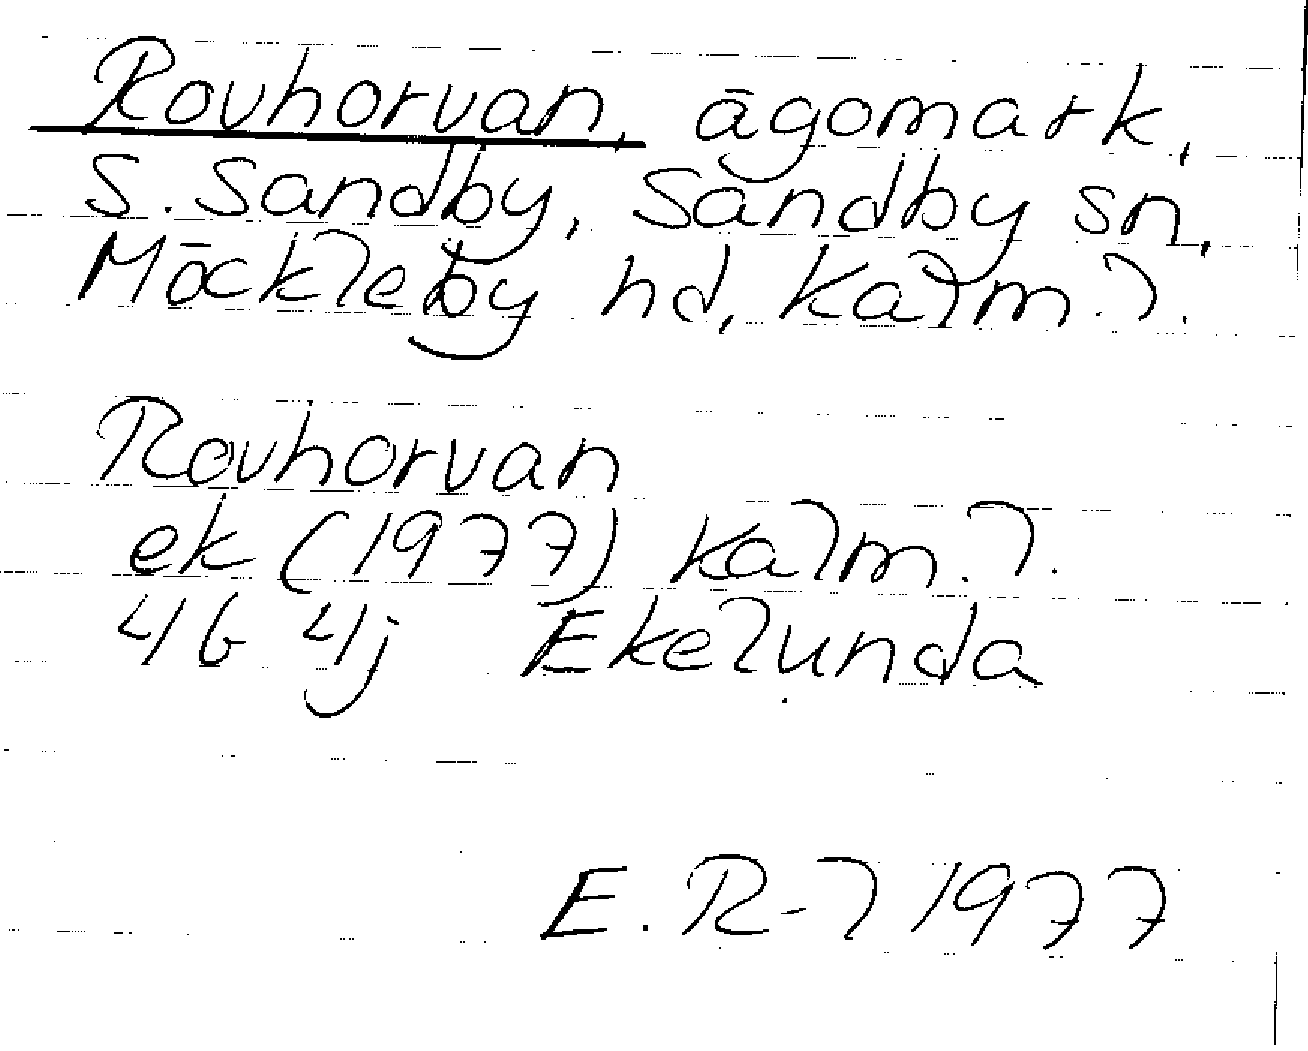 Rovhorvan, ägomark,
S. Sandby, Sandby sn,
Möckleby hd, Kalm. l.
Rovhorvan
ek (1977) Kalm. l.
4G 4j Ekelunda
E. R-l 1977